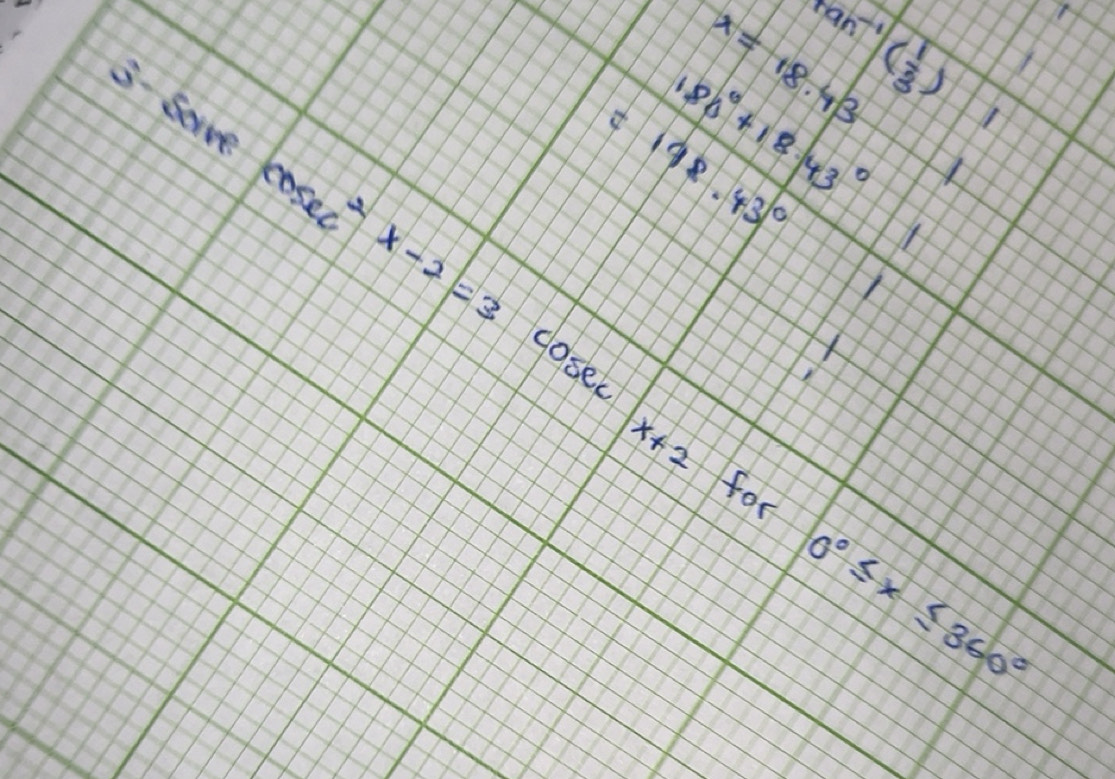 tan⁻¹ (1/3)
x = 18.43
180° + 18.43°
= 198.43°
3. Solve cosec² x - 2 = 3 cosec x + 2 for 0° ≤ x ≤ 360°